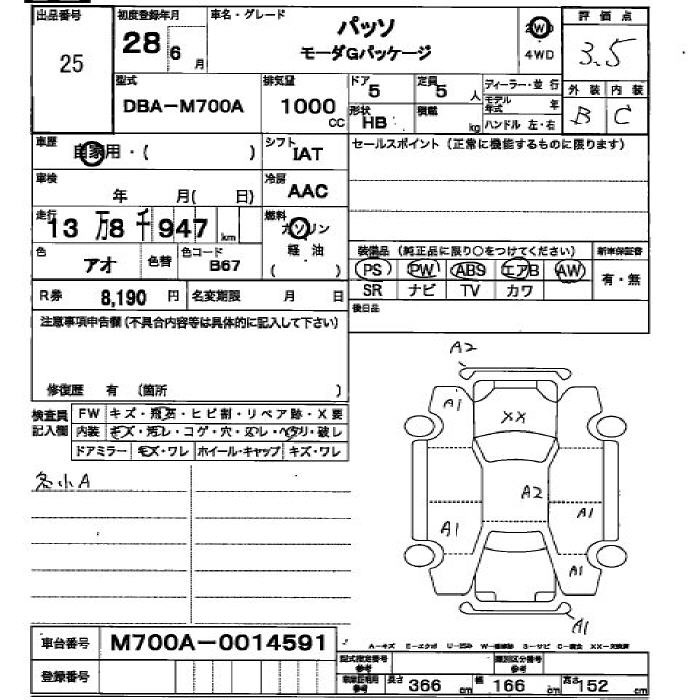 出品番号 初度登録年月 車名・グレード 評価点
25 28年 6月 パッソ 2WD 3.5
モーダGパッケージ 4WD
型式 排気量 ドア 定員 ディーラー・並行 外装 内装
DBA-M700A 1000cc 5 5人 モデル年式 年 B C
形状 HB 積載 kg ハンドル 左・右
車歴 自家用・( ) シフト IAT セールスポイント(正常に機能するものに限ります)
車検 年 月( 日) 冷房 AAC
走行 13万8千947km 燃料 ガソリン 軽油 ( )
色 アオ 色替 色コード B67 装備品(純正品に限り○をつけてください) 新車保証書
PS PW ABS エアB AW 有・無
SR ナビ TV カワ
R券 8,190円 名変期限 月 日 後日品
注意事項申告欄(不具合内容等は具体的に記入して下さい)
修復歴 有 (箇所 )
検査員記入欄 FW キズ・飛石・ヒビ割・リペア跡・X要
内装 キズ・汚レ・コゲ・穴・スレ・ヘタリ・破レ
ドアミラー キズ・ワレ ホイール・キャップ キズ・ワレ
各小A
A2
A1 XX
A2 A1
A1
A1
A1
車台番号 M700A-0014591
A-キズ E-エクボ U-凹み W-補修跡 S-サビ C-腐食 XX-交換済
登録番号 型式指定番号 参考 類別区分番号 参考
車庫証明用 参考 長さ 366cm 幅 166cm 高さ 152cm